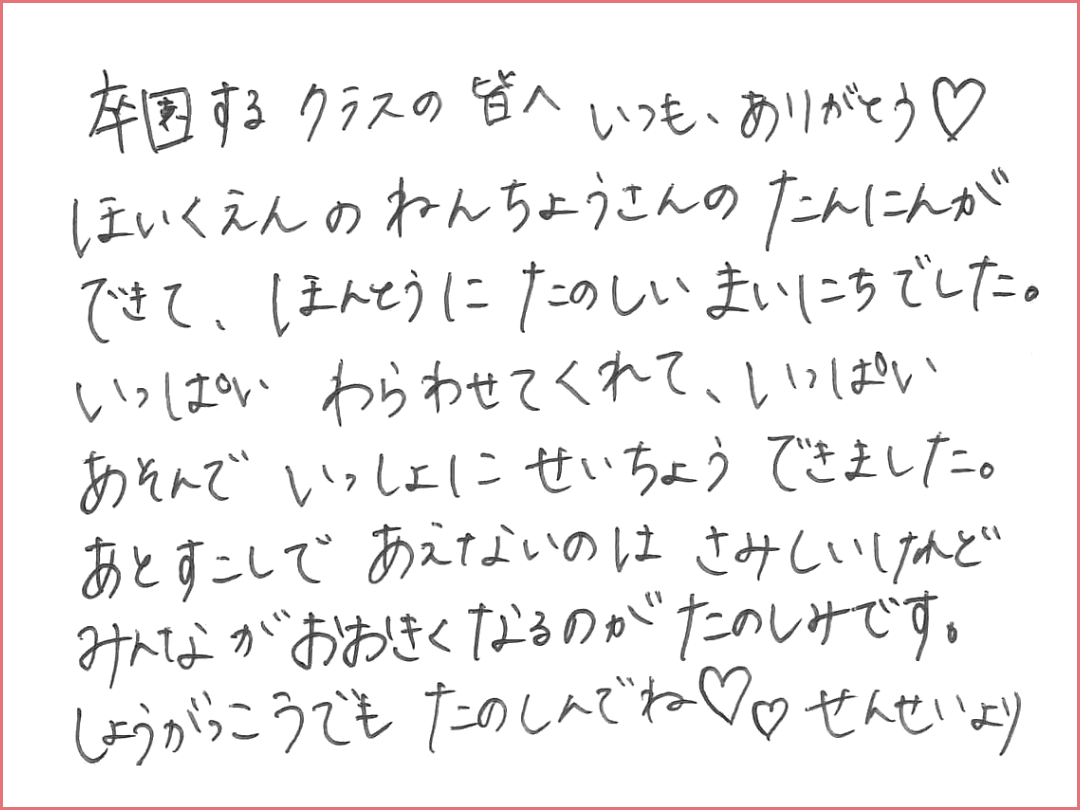 卒園する クラスの 皆へ いつも、ありがとう♡
ほいくえんの ねんちょうさんの たんにんが
できて、ほんとうに たのしい まいにちでした。
いっぱい わらわせてくれて、いっぱい
あそんで いっしょに せいちょう できました。
あとすこしで あえないのは さみしいけれど
みんなが おおきく なるのが たのしみです。
しょうがっこうでも たのしんでね♡♡ せんせいより